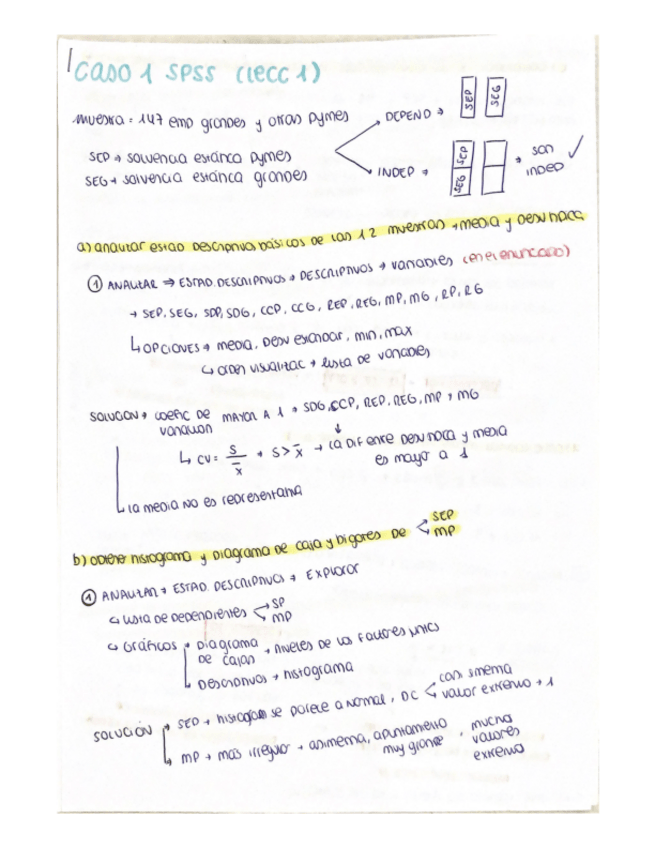 CASO 1 SPSS (LECC 1)
muestra = 147 emp grandes y otras pymes
DEPEND → SEP SEG
SEP → solvencia estática pymes
SEG → solvencia estática grandes
INDEP → SEG SEP → son indep ✓
a) analizar estad descriptivos básicos de las 12 muestras → media y desv típica
① ANALIZAR → ESTAD. DESCRIPTIVOS → DESCRIPTIVOS → variables (en el enunciado)
→ SEP, SEG, SDP, SDG, CCP, CCG, REP, REG, MP, MG, RP, RG
↳ OPCIONES → media, desv estandar, min, max
↳ orden visualizac → lista de variables
solución → coefic de variación mayor a 1 → SDG, CCP, REP, REG, MP y MG
↳ CV = S / x̄ → S > x̄ → la dif entre desv típica y media
es mayor a 1
la media no es representativa
b) obtene histograma y diagrama de caja y bigotes de < SEP
MP
① ANALIZAR → ESTAD. DESCRIPTIVOS → Explorar
↳ Lista de dependientes < SP
MP
↳ Gráficos → Diagrama de cajas → niveles de los factores juntos
Descriptivos → histograma
solución → SEP → histograma se parece a normal, DC < casi simetria
valor extremo → 1
MP → mas irregular → asimetria, apuntamiento muy grande, muchos valores extremos